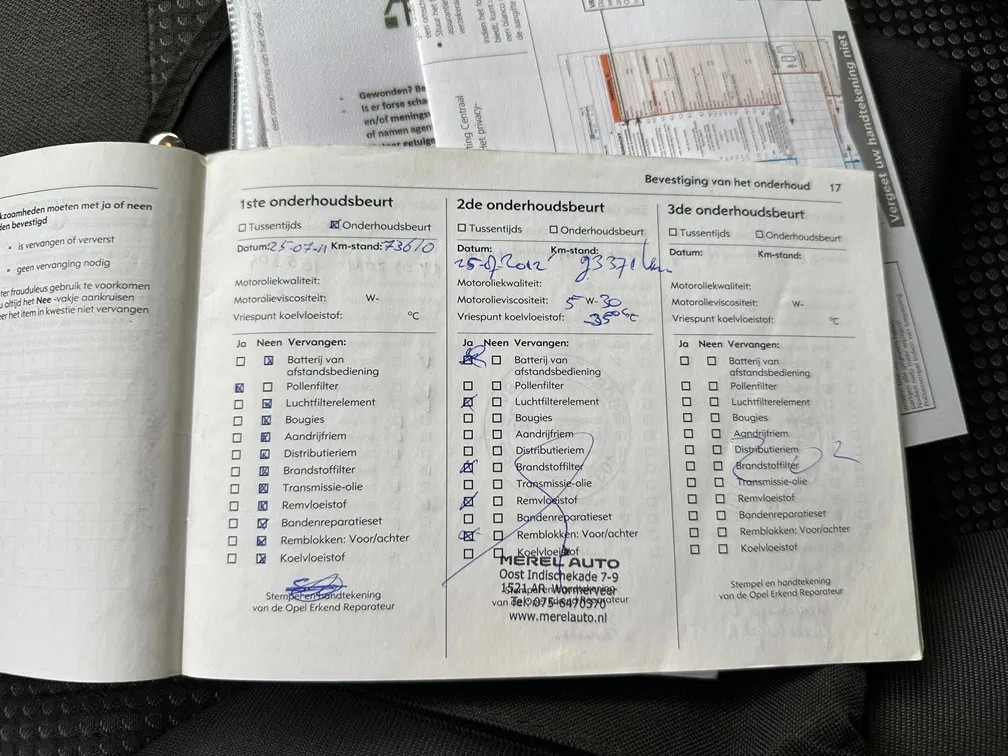 Gewonden? Be
Is er forse scha
en/of menings
of namen agen
Vergeet uw handtekening niet
ting Centraal
Het privacy-
kzaamheden moeten met ja of neen
den bevestigd
• is vervangen of ververst
• geen vervanging nodig
ter frauduleus gebruik te voorkomen
u altijd het Nee -vakje aankruisen
eer het item in kwestie niet vervangen
Bevestiging van het onderhoud 17
1ste onderhoudsbeurt
Tussentijds Onderhoudsbeurt
Datum: 25-07-11 Km-stand: 73610
Motoroliekwaliteit:
Motorolieviscositeit: W-
Vriespunt koelvloeistof: °C
Ja Neen Vervangen:
Batterij van
afstandsbediening
Pollenfilter
Luchtfilterelement
Bougies
Aandrijfriem
Distributieriem
Brandstoffilter
Transmissie-olie
Remvloeistof
Bandenreparatieset
Remblokken: Voor/achter
Koelvloeistof
Stempel en handtekening
van de Opel Erkend Reparateur
2de onderhoudsbeurt
Tussentijds Onderhoudsbeurt
Datum: Km-stand:
93371 km
Motoroliekwaliteit:
Motorolieviscositeit: 5 W-30
Vriespunt koelvloeistof: 35°C
Ja Neen Vervangen:
Batterij van
afstandsbediening
Pollenfilter
Luchtfilterelement
Bougies
Aandrijfriem
Distributieriem
Brandstoffilter
Transmissie-olie
Remvloeistof
Bandenreparatieset
Remblokken: Voor/achter
Koelvloeistof
MEREL AUTO
Oost Indischekade 7-9
1521 AR Wormerveer
Stempel en handtekening
Tel. 075-6470370
van de Opel Erkend Reparateur
www.merelauto.nl
3de onderhoudsbeurt
Tussentijds Onderhoudsbeurt
Datum: Km-stand:
Motoroliekwaliteit:
Motorolieviscositeit: W-
Vriespunt koelvloeistof: °C
Ja Neen Vervangen:
Batterij van
afstandsbediening
Pollenfilter
Luchtfilterelement
Bougies
Aandrijfriem
Distributieriem
Brandstoffilter
Transmissie-olie
Remvloeistof
Bandenreparatieset
Remblokken: Voor/achter
Koelvloeistof
Stempel en handtekening
van de Opel Erkend Reparateur